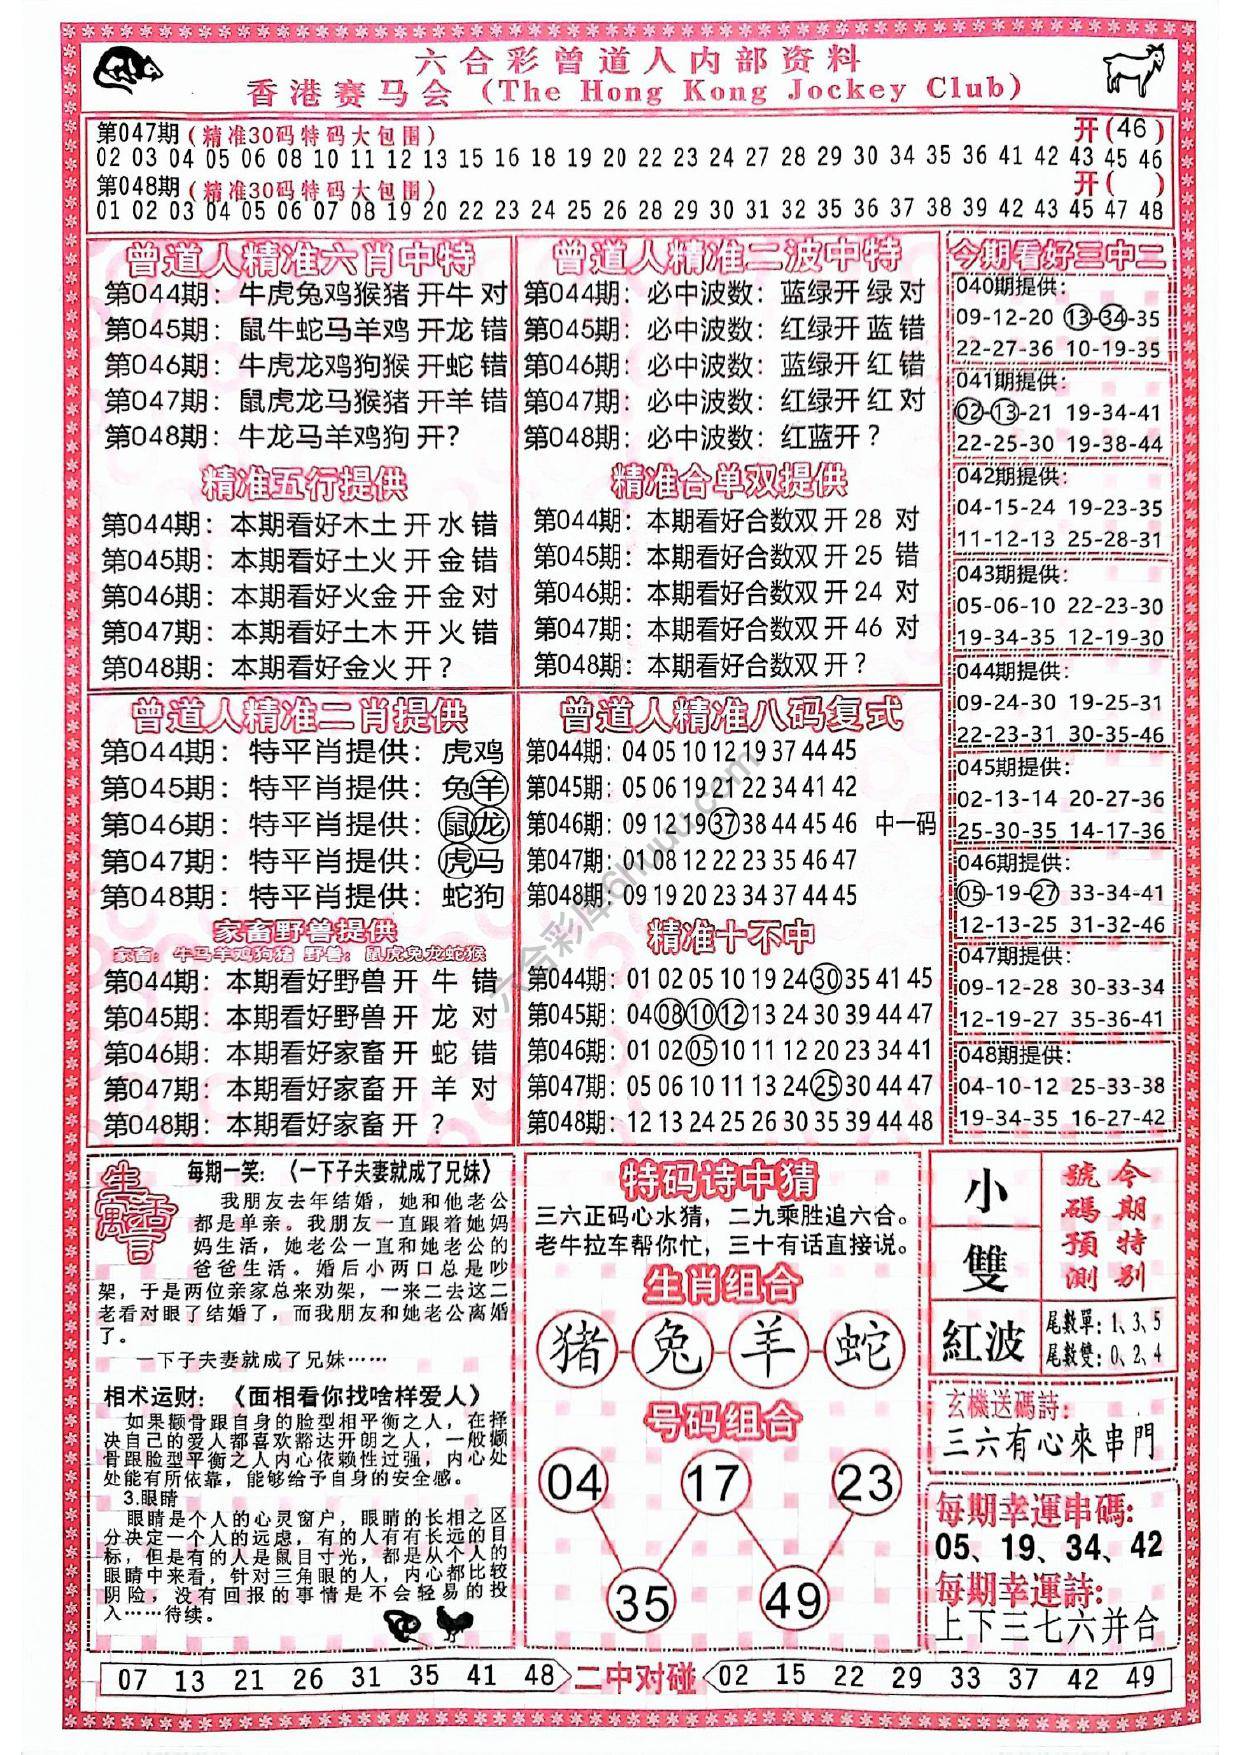 六合彩曾道人内部资料
香港赛马会 (The Hong Kong Jockey Club)
第047期(精准30码特码大包围) 开(46)
02 03 04 05 06 08 10 11 12 13 15 16 18 19 20 22 23 24 27 28 29 30 34 35 36 41 42 43 45 46
第048期(精准30码特码大包围) 开( )
01 02 03 04 05 06 07 08 19 20 22 23 24 25 26 28 29 30 31 32 35 36 37 38 39 42 43 45 47 48
曾道人精准六肖中特
第044期：牛虎兔鸡猴猪 开牛 对
第045期：鼠牛蛇马羊鸡 开龙 错
第046期：牛虎龙鸡狗猴 开蛇 错
第047期：鼠虎龙马猴猪 开羊 错
第048期：牛龙马羊鸡狗 开?
精准五行提供
第044期：本期看好木土 开 水 错
第045期：本期看好土火 开 金 错
第046期：本期看好火金 开 金 对
第047期：本期看好土木 开 火 错
第048期：本期看好金火 开 ?
曾道人精准二波中特
第044期：必中波数：蓝绿开 绿 对
第045期：必中波数：红绿开 蓝 错
第046期：必中波数：蓝绿开 红 错
第047期：必中波数：红绿开 红 对
第048期：必中波数：红蓝开 ?
精准合单双提供
第044期：本期看好合数双 开 28 对
第045期：本期看好合数双 开 25 错
第046期：本期看好合数双 开 24 对
第047期：本期看好合数双 开 46 对
第048期：本期看好合数双 开 ?
今期看好三中二
040期提供：
09-12-20 13-34-35
22-27-36 10-19-35
041期提供：
02-13-21 19-34-41
22-25-30 19-38-44
042期提供：
04-15-24 19-23-35
11-12-13 25-28-31
043期提供：
05-06-10 22-23-30
19-34-35 12-19-30
044期提供：
09-24-30 19-25-31
22-23-31 30-35-46
045期提供：
02-13-14 20-27-36
25-30-35 14-17-36
046期提供：
05-19-27 33-34-41
12-13-25 31-32-46
047期提供：
09-12-28 30-33-34
12-19-27 35-36-41
048期提供：
04-10-12 25-33-38
19-34-35 16-27-42
曾道人精准二肖提供
第044期：特平肖提供：虎鸡
第045期：特平肖提供：兔羊
第046期：特平肖提供：鼠龙
第047期：特平肖提供：虎马
第048期：特平肖提供：蛇狗
家畜野兽提供
家畜：牛马羊鸡狗猪 野兽：鼠虎兔龙蛇猴
第044期：本期看好野兽 开 牛 错
第045期：本期看好野兽 开 龙 对
第046期：本期看好家畜 开 蛇 错
第047期：本期看好家畜 开 羊 对
第048期：本期看好家畜 开 ?
曾道人精准八码复式
第044期：04 05 10 12 19 37 44 45
第045期：05 06 19 21 22 34 41 42
第046期：09 12 19 37 38 44 45 46 中一码
第047期：01 08 12 22 23 35 46 47
第048期：09 19 20 23 34 37 44 45
精准十不中
第044期：01 02 05 10 19 24 30 35 41 45
第045期：04 08 10 12 13 24 30 39 44 47
第046期：01 02 05 10 11 12 20 23 34 41
第047期：05 06 10 11 13 24 25 30 44 47
第048期：12 13 24 25 26 30 35 39 44 48
六合彩库6huuu.com
生活寓言
每期一笑：〈一下子夫妻就成了兄妹〉
我朋友去年结婚，她和他老公
都是单亲。我朋友一直跟着她妈
妈生活，她老公一直和她老公的
爸爸生活。婚后小两口总是吵
架，于是两位亲家总来劝架，一来二去这二
老看对眼了结婚了，而我朋友和她老公离婚
了。
一下子夫妻就成了兄妹……
相术运财：《面相看你找啥样爱人》
如果颧骨跟自身的脸型相平衡之人，在择
决自己的爱人都喜欢豁达开朗之人，一般颧
骨跟脸型平衡之人内心依赖性过强，内心处
处能有所依靠，能够给予自身的安全感。
3.眼睛
眼睛是个人的心灵窗户，眼睛的长相之区
分决定一个人的远虑，有的人有有长远的目
标，但是有的人是鼠目寸光，都是从个人的
眼睛中来看，针对三角眼的人，内心都比较
阴险，没有回报的事情是不会轻易的投
入……待续。
特码诗中猜
三六正码心水猜，二九乘胜追六合。
老牛拉车帮你忙，三十有话直接说。
生肖组合
猪-兔-羊-蛇
号码组合
04 17 23
35 49
小
雙
紅波
今期特别
號碼預測
尾數單：1、3、5
尾數雙：0、2、4
玄機送碼詩：
三六有心來串門
每期幸運串碼：
05、19、34、42
每期幸運詩：
上下三七六并合
07 13 21 26 31 35 41 48 二中对碰 02 15 22 29 33 37 42 49